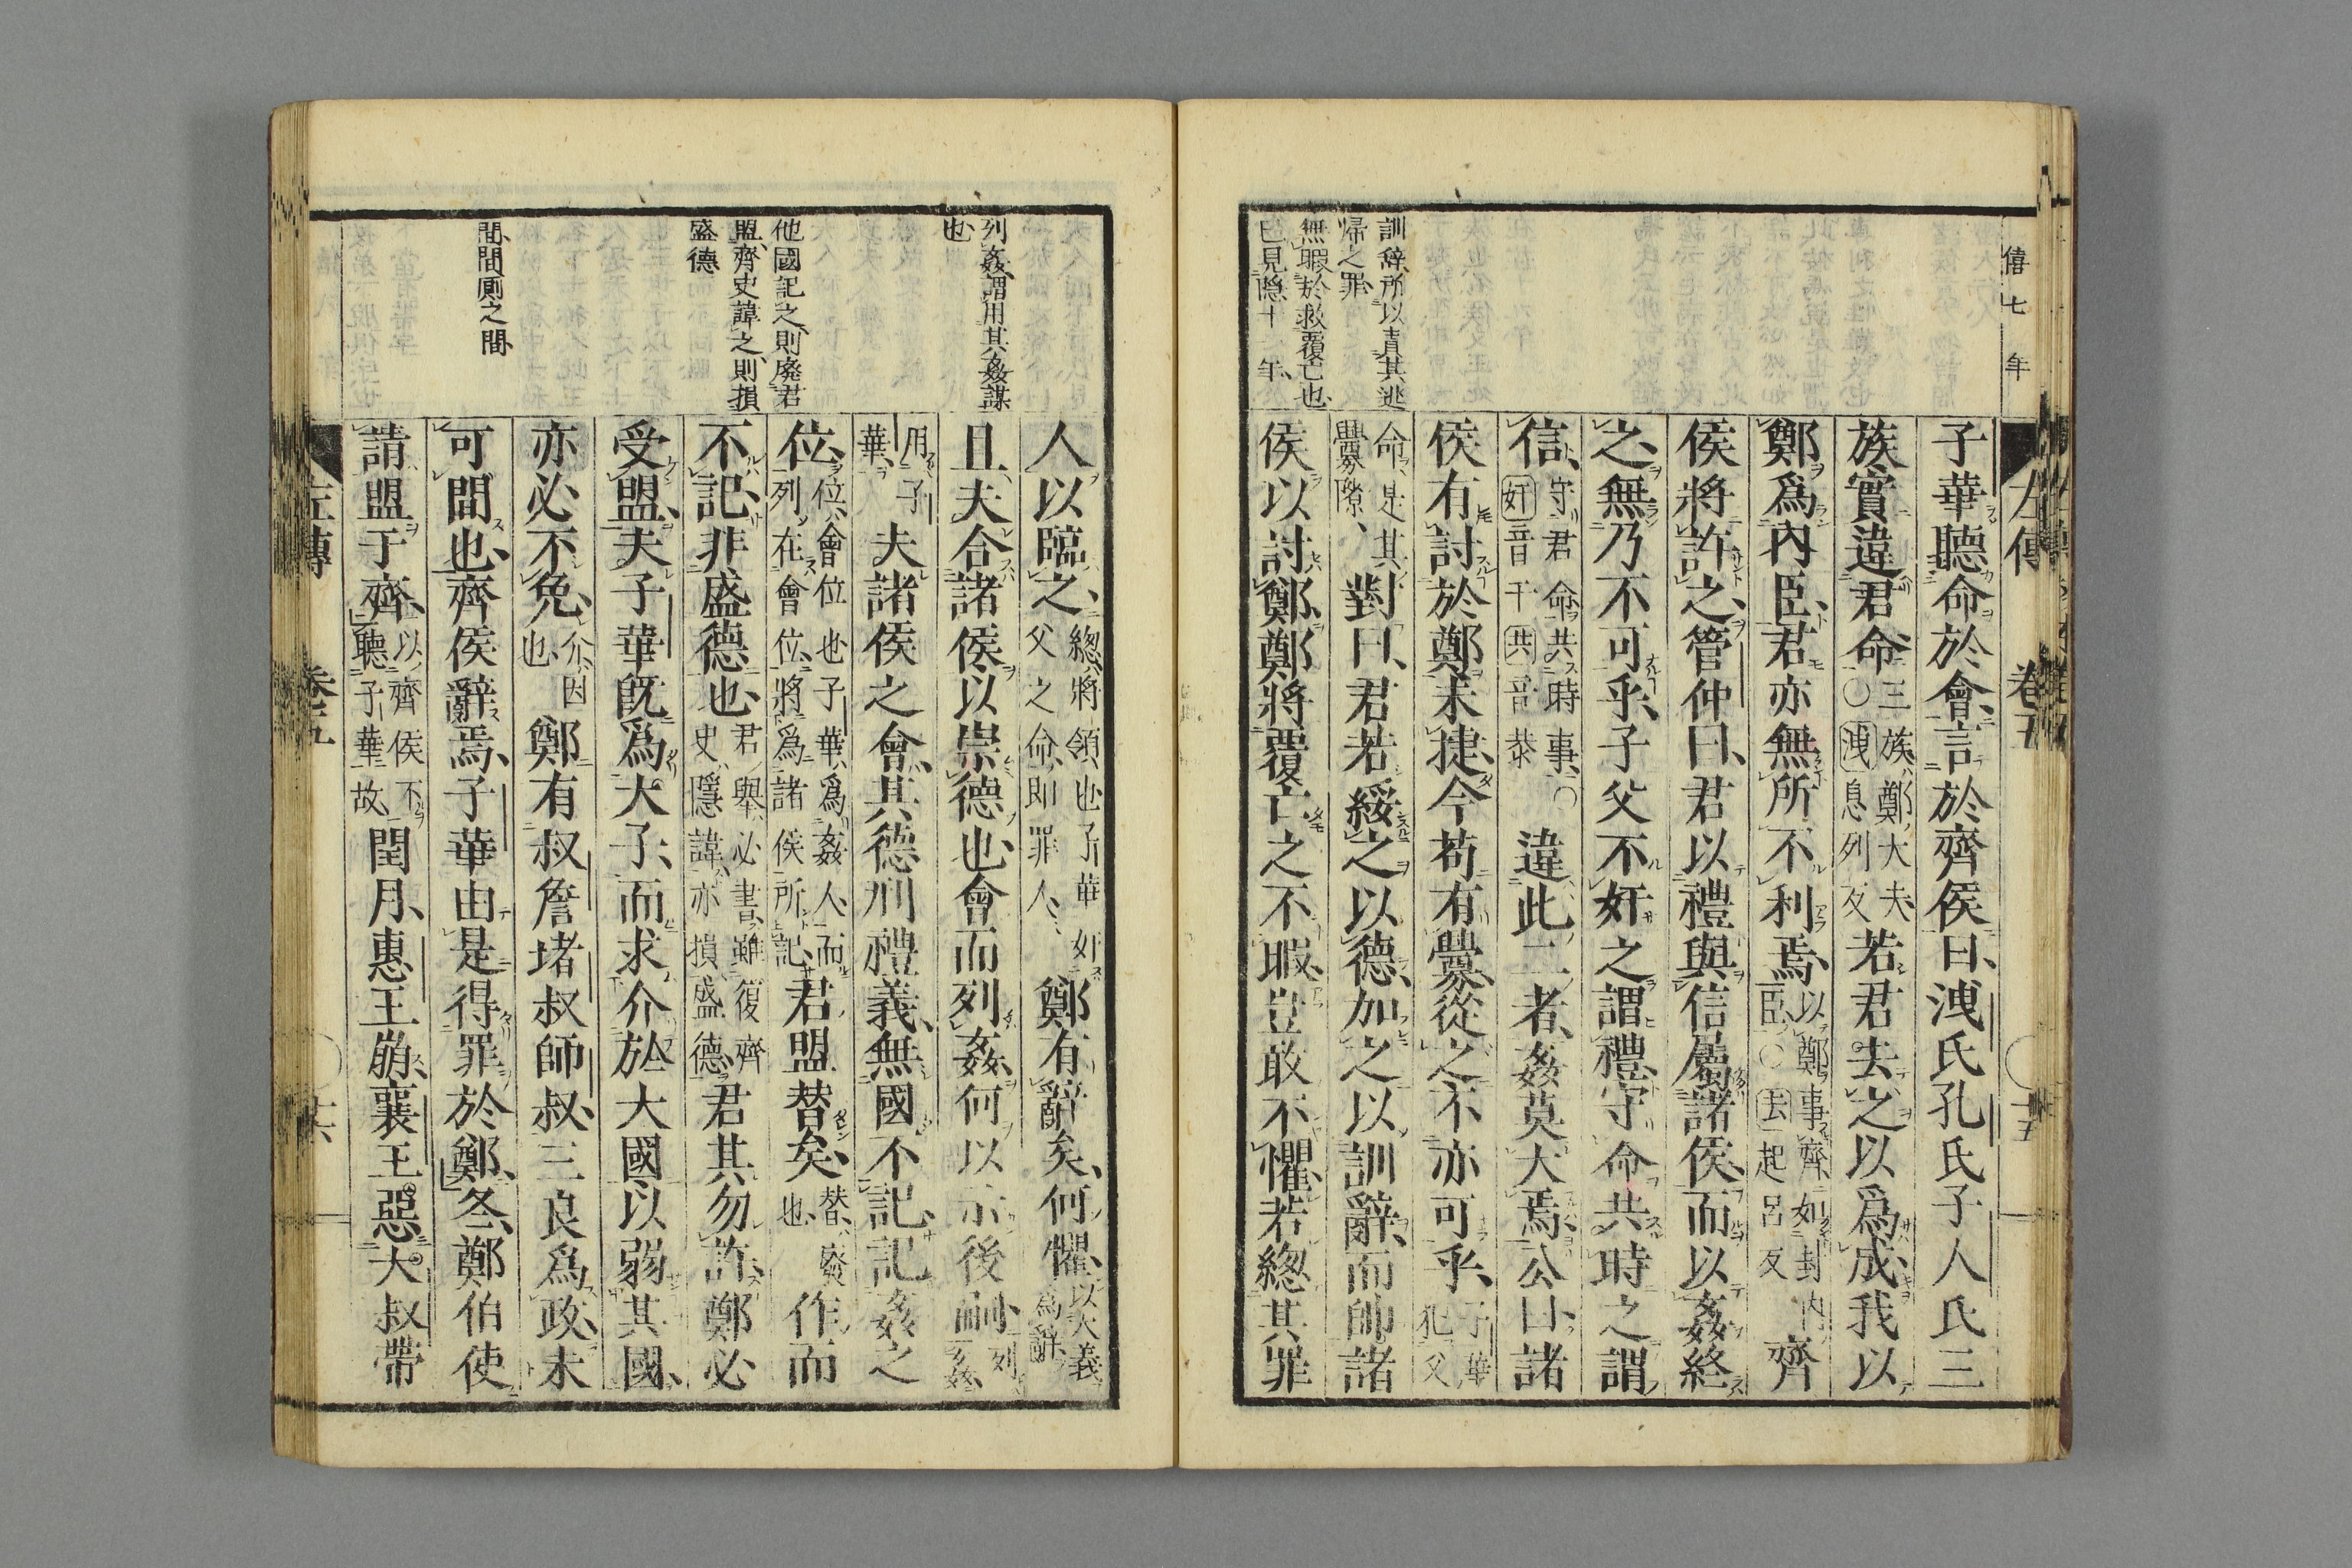 僖七年
左傳 卷五 十五
子華聽命於會言於齊侯曰洩氏孔氏子人氏三
族實違君命三族鄭大夫○洩息列反若君去之以爲成我以
鄭爲內臣君亦無所不利焉以鄭事齊如封內臣○去起呂反齊
侯將許之管仲曰君以禮與信屬諸侯而以姦終
之無乃不可乎子父不奸之謂禮守命共時之謂
信守君命共時事○奸音干共音恭違此二者姦莫大焉公曰諸
侯有討於鄭未捷今苟有釁從之不亦可乎子華犯父
命是其釁隙對曰君若綏之以德加之以訓辭而帥諸
侯以討鄭鄭將覆亡之不暇豈敢不懼若總其罪
訓辭所以責其逃
帰之罪
無暇於救覆亡也
已見隱十一年
人以臨之總將領也子華奸父之命即罪人鄭有辭矣何懼以大義爲辭
且夫合諸侯以崇德也會而列姦何以示後嗣列姦
用子華夫諸侯之會其德刑禮義無國不記記姦之
位位會位也子華爲姦人而列在會位將爲諸侯所記君盟替矣替廢也作而
不記非盛德也君舉必書雖復齊史隱諱亦損盛德君其勿許鄭必
受盟夫子華既爲大子而求介於大國以弱其國
亦必不免介因也鄭有叔詹堵叔師叔三良爲政未
可間也齊侯辭焉子華由是得罪於鄭冬鄭伯使
請盟于齊以齊侯不聽子華故閏月惠王崩襄王惡大叔帶
列姦謂用其姦謀
也
他國記之則廢君
盟齊史諱之則損
盛德
間間厠之間
左傳 卷五 十六